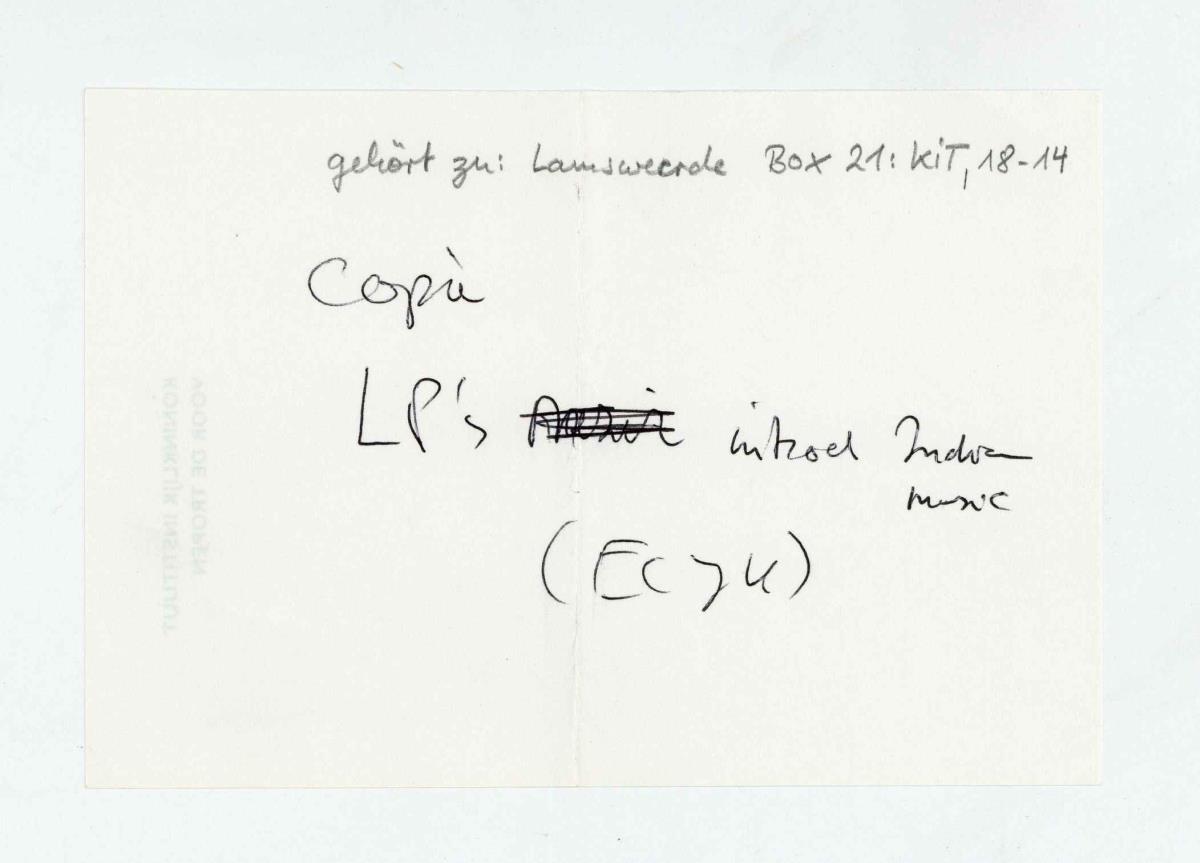 gehört zu: Lamsweerde Box 21: KiT, 18-14
Copie
LP's introd Indian
music
(Ecyk)
KONINKLIJK INSTITUUT
VOOR DE TROPEN